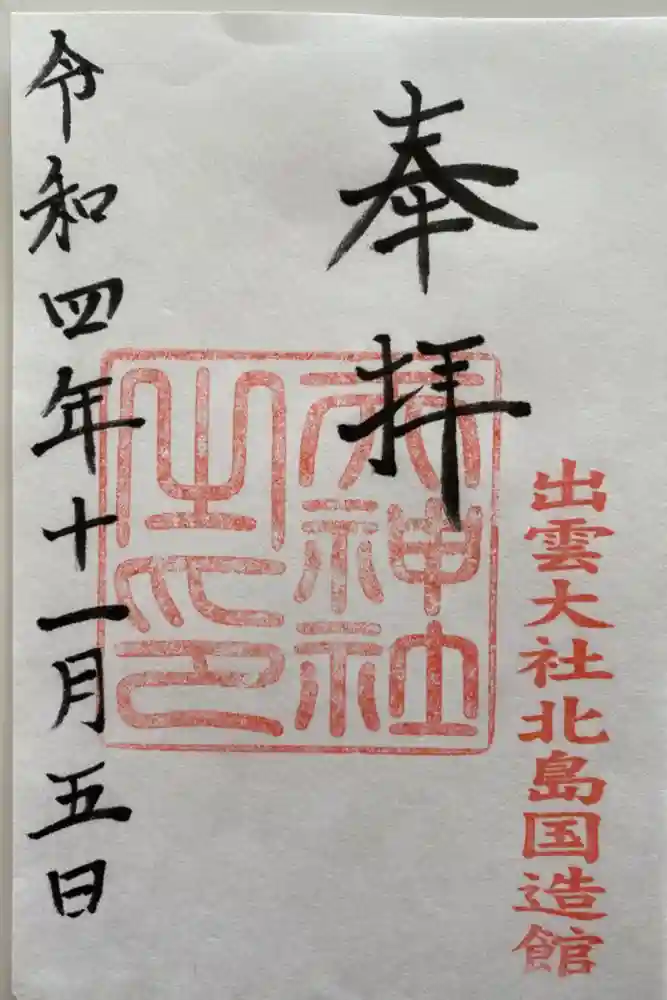 奉拝
出雲大社北島国造館
天神社之印
令和四年十一月五日